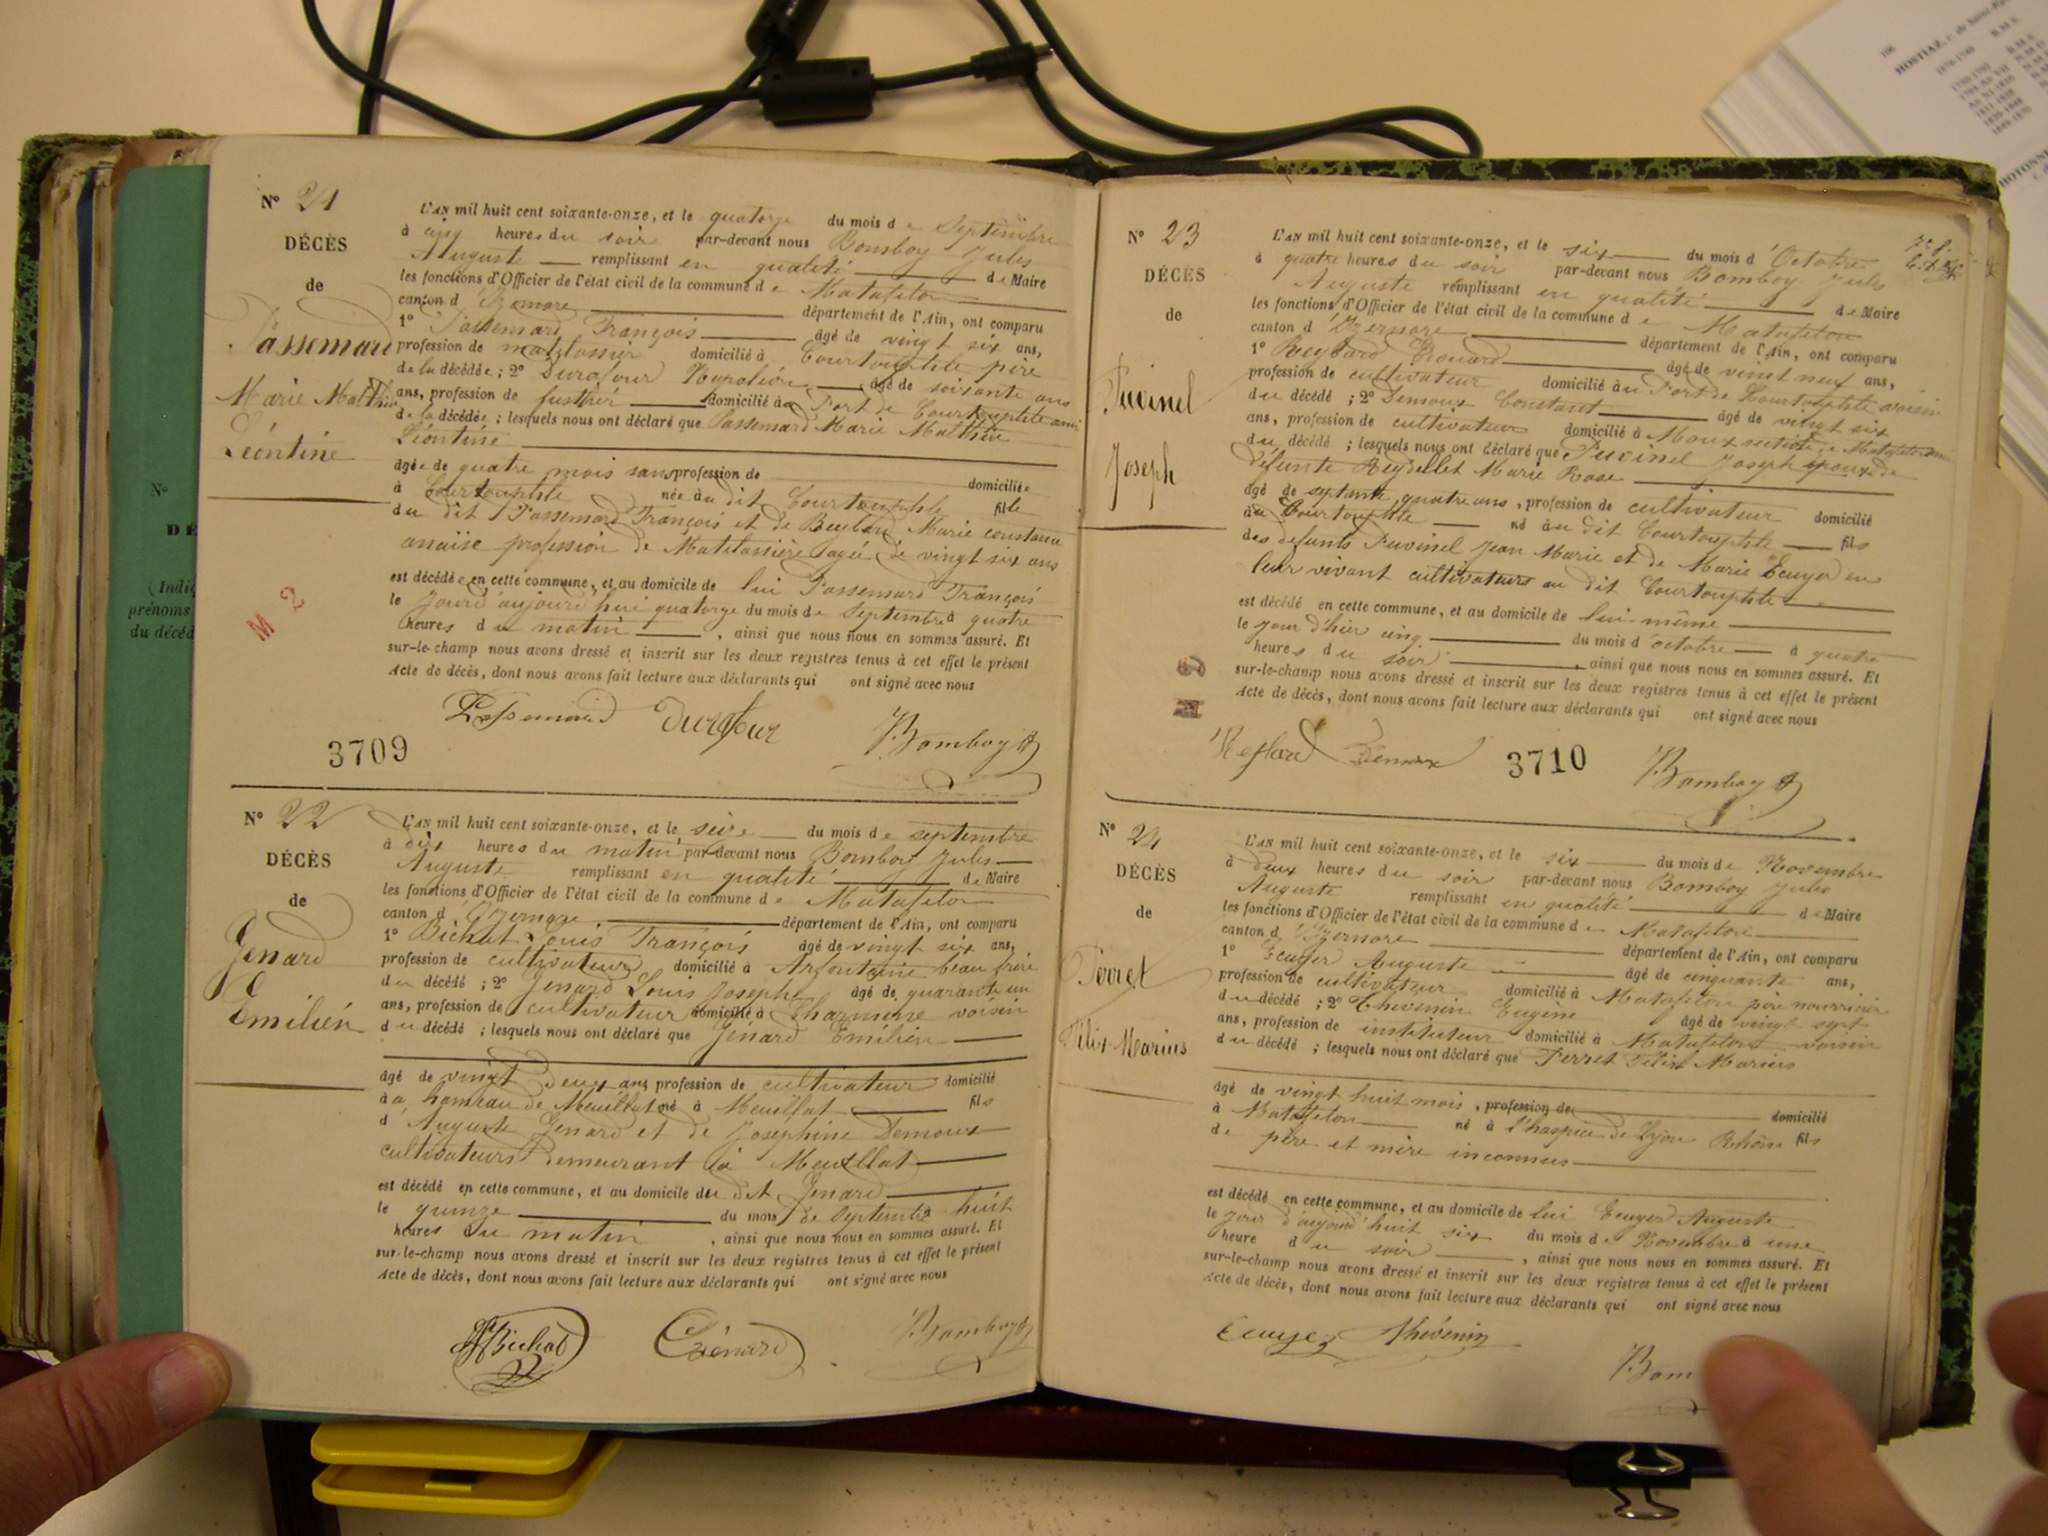 N° 21
DÉCÈS
de
Passemard
Marie Mathie
Léontine
L'AN mil huit cent soixante-onze, et le quatorze du mois de Septembre
à cinq heures du soir par-devant nous Bomboy Jules
Auguste remplissant en qualité de Maire
les fonctions d'Officier de l'état civil de la commune de Matafelon
canton d'Izernore département de l'Ain, ont comparu
1° Passemard François âgé de vingt six ans,
profession de matelassier domicilié à Courtouphle père
de la décédée ; 2° Durafour Napoléon âgé de soixante ans
ans, profession de domicilié au Port de Courtouphle ami
de la décédée ; lesquels nous ont déclaré que Passemard Marie Mathie
Léontine
âgée de quatre mois sans profession de domiciliée
à Courtouphle née au dit Courtouphle fille
du dit Passemard François et de Marie constance
anaïse profession de Matelassière agée de vingt six ans
est décédée en cette commune, et au domicile de lui Passemard François
le jourd'aujourd'hui quatorze du mois de Septembre à quatre
heures du matin , ainsi que nous nous en sommes assuré. Et
sur-le-champ nous avons dressé et inscrit sur les deux registres tenus à cet effet le présent
Acte de décès, dont nous avons fait lecture aux déclarants qui ont signé avec nous
Passemard Durafour Bomboy
3709
M 2
N° 22
DÉCÈS
de
Jenard
Emilién
L'AN mil huit cent soixante-onze, et le seize du mois de septembre
à dix heures du matin par-devant nous Bomboy Jules
Auguste remplissant en qualité de Maire
les fonctions d'Officier de l'état civil de la commune de Matafelon
canton d'Izernore département de l'Ain, ont comparu
1° Bichat Louis François âgé de vingt six ans,
profession de cultivateur domicilié à Arfontaine beau frère
du décédé ; 2° Jenard Louis Joseph âgé de quarante un
ans, profession de cultivateur domicilié à Tharmene voisin
du décédé ; lesquels nous ont déclaré que Jénard Emilién
âgé de vingt deux ans profession de cultivateur domicilié
au hameau de Meuillat né à Meuillat fils
d'Auguste Jenard et de Joséphine Demoux
cultivateurs demeurant à Meuillat
est décédé en cette commune, et au domicile du dit Jenard
le quinze du mois de Septembre huit
heures du matin , ainsi que nous nous en sommes assuré. Et
sur-le-champ nous avons dressé et inscrit sur les deux registres tenus à cet effet le présent
Acte de décès, dont nous avons fait lecture aux déclarants qui ont signé avec nous
Bichat Génard Bomboy
N° 23
DÉCÈS
de
Puvinel
Joseph
L'AN mil huit cent soixante-onze, et le six du mois d'Octobre
à quatre heures du soir par-devant nous Bomboy Jules
Auguste remplissant en qualité de Maire
les fonctions d'Officier de l'état civil de la commune de Matafelon
canton d'Izernore département de l'Ain, ont comparu
1° Reylard Edouard âgé de vingt neuf ans,
profession de cultivateur domicilié au Port de Courtouphle voisin
du décédé ; 2° Demoux Constant âgé de vingt six
ans, profession de cultivateur domicilié à Moux section de Matafelon
du décédé ; lesquels nous ont déclaré que Puvinel Joseph époux de
défunte Reydellet Marie Rose
âgé de septante quatre ans , profession de cultivateur domicilié
au Courtouphle né au dit Courtouphle fils
des defunts Puvinel Jean Marie et de Marie Ecuyer en
leur vivant cultivateurs au dit Courtouphle
est décédé en cette commune, et au domicile de lui-même
le jour d'hier cinq du mois d'octobre à quatre
heures du soir , ainsi que nous nous en sommes assuré. Et
sur-le-champ nous avons dressé et inscrit sur les deux registres tenus à cet effet le présent
Acte de décès, dont nous avons fait lecture aux déclarants qui ont signé avec nous
Reylard Demoux Bomboy
3710
N° 24
DÉCÈS
de
Perret
Félix Marius
L'AN mil huit cent soixante-onze, et le six du mois de Novembre
à deux heures du soir par-devant nous Bomboy Jules
Auguste remplissant en qualité de Maire
les fonctions d'Officier de l'état civil de la commune de Matafelon
canton d'Izernore département de l'Ain, ont comparu
1° Ecuyer Auguste âgé de cinquante ans,
profession de cultivateur domicilié à Matafelon père nourricier
du décédé ; 2° Thevenin Eugène âgé de vingt sept
ans, profession de instituteur domicilié à Matafelon voisin
du décédé ; lesquels nous ont déclaré que Perret Félix Mariers
âgé de vingt huit mois , profession de domicilié
à Matafelon né à l'hospice de Lyon Rhône fils
de père et mère inconnus
est décédé en cette commune, et au domicile de lui Ecuyer Auguste
le jour d'aujourd'huit six du mois de Novembre à une
heure du soir , ainsi que nous nous en sommes assuré. Et
sur-le-champ nous avons dressé et inscrit sur les deux registres tenus à cet effet le présent
Acte de décès, dont nous avons fait lecture aux déclarants qui ont signé avec nous
Ecuyer Thévenin Bom
N°
DÉ
(Indiq
prénoms
du décéd
106
HOSTIAZ, c. de Saint-Ra
HOTONNE